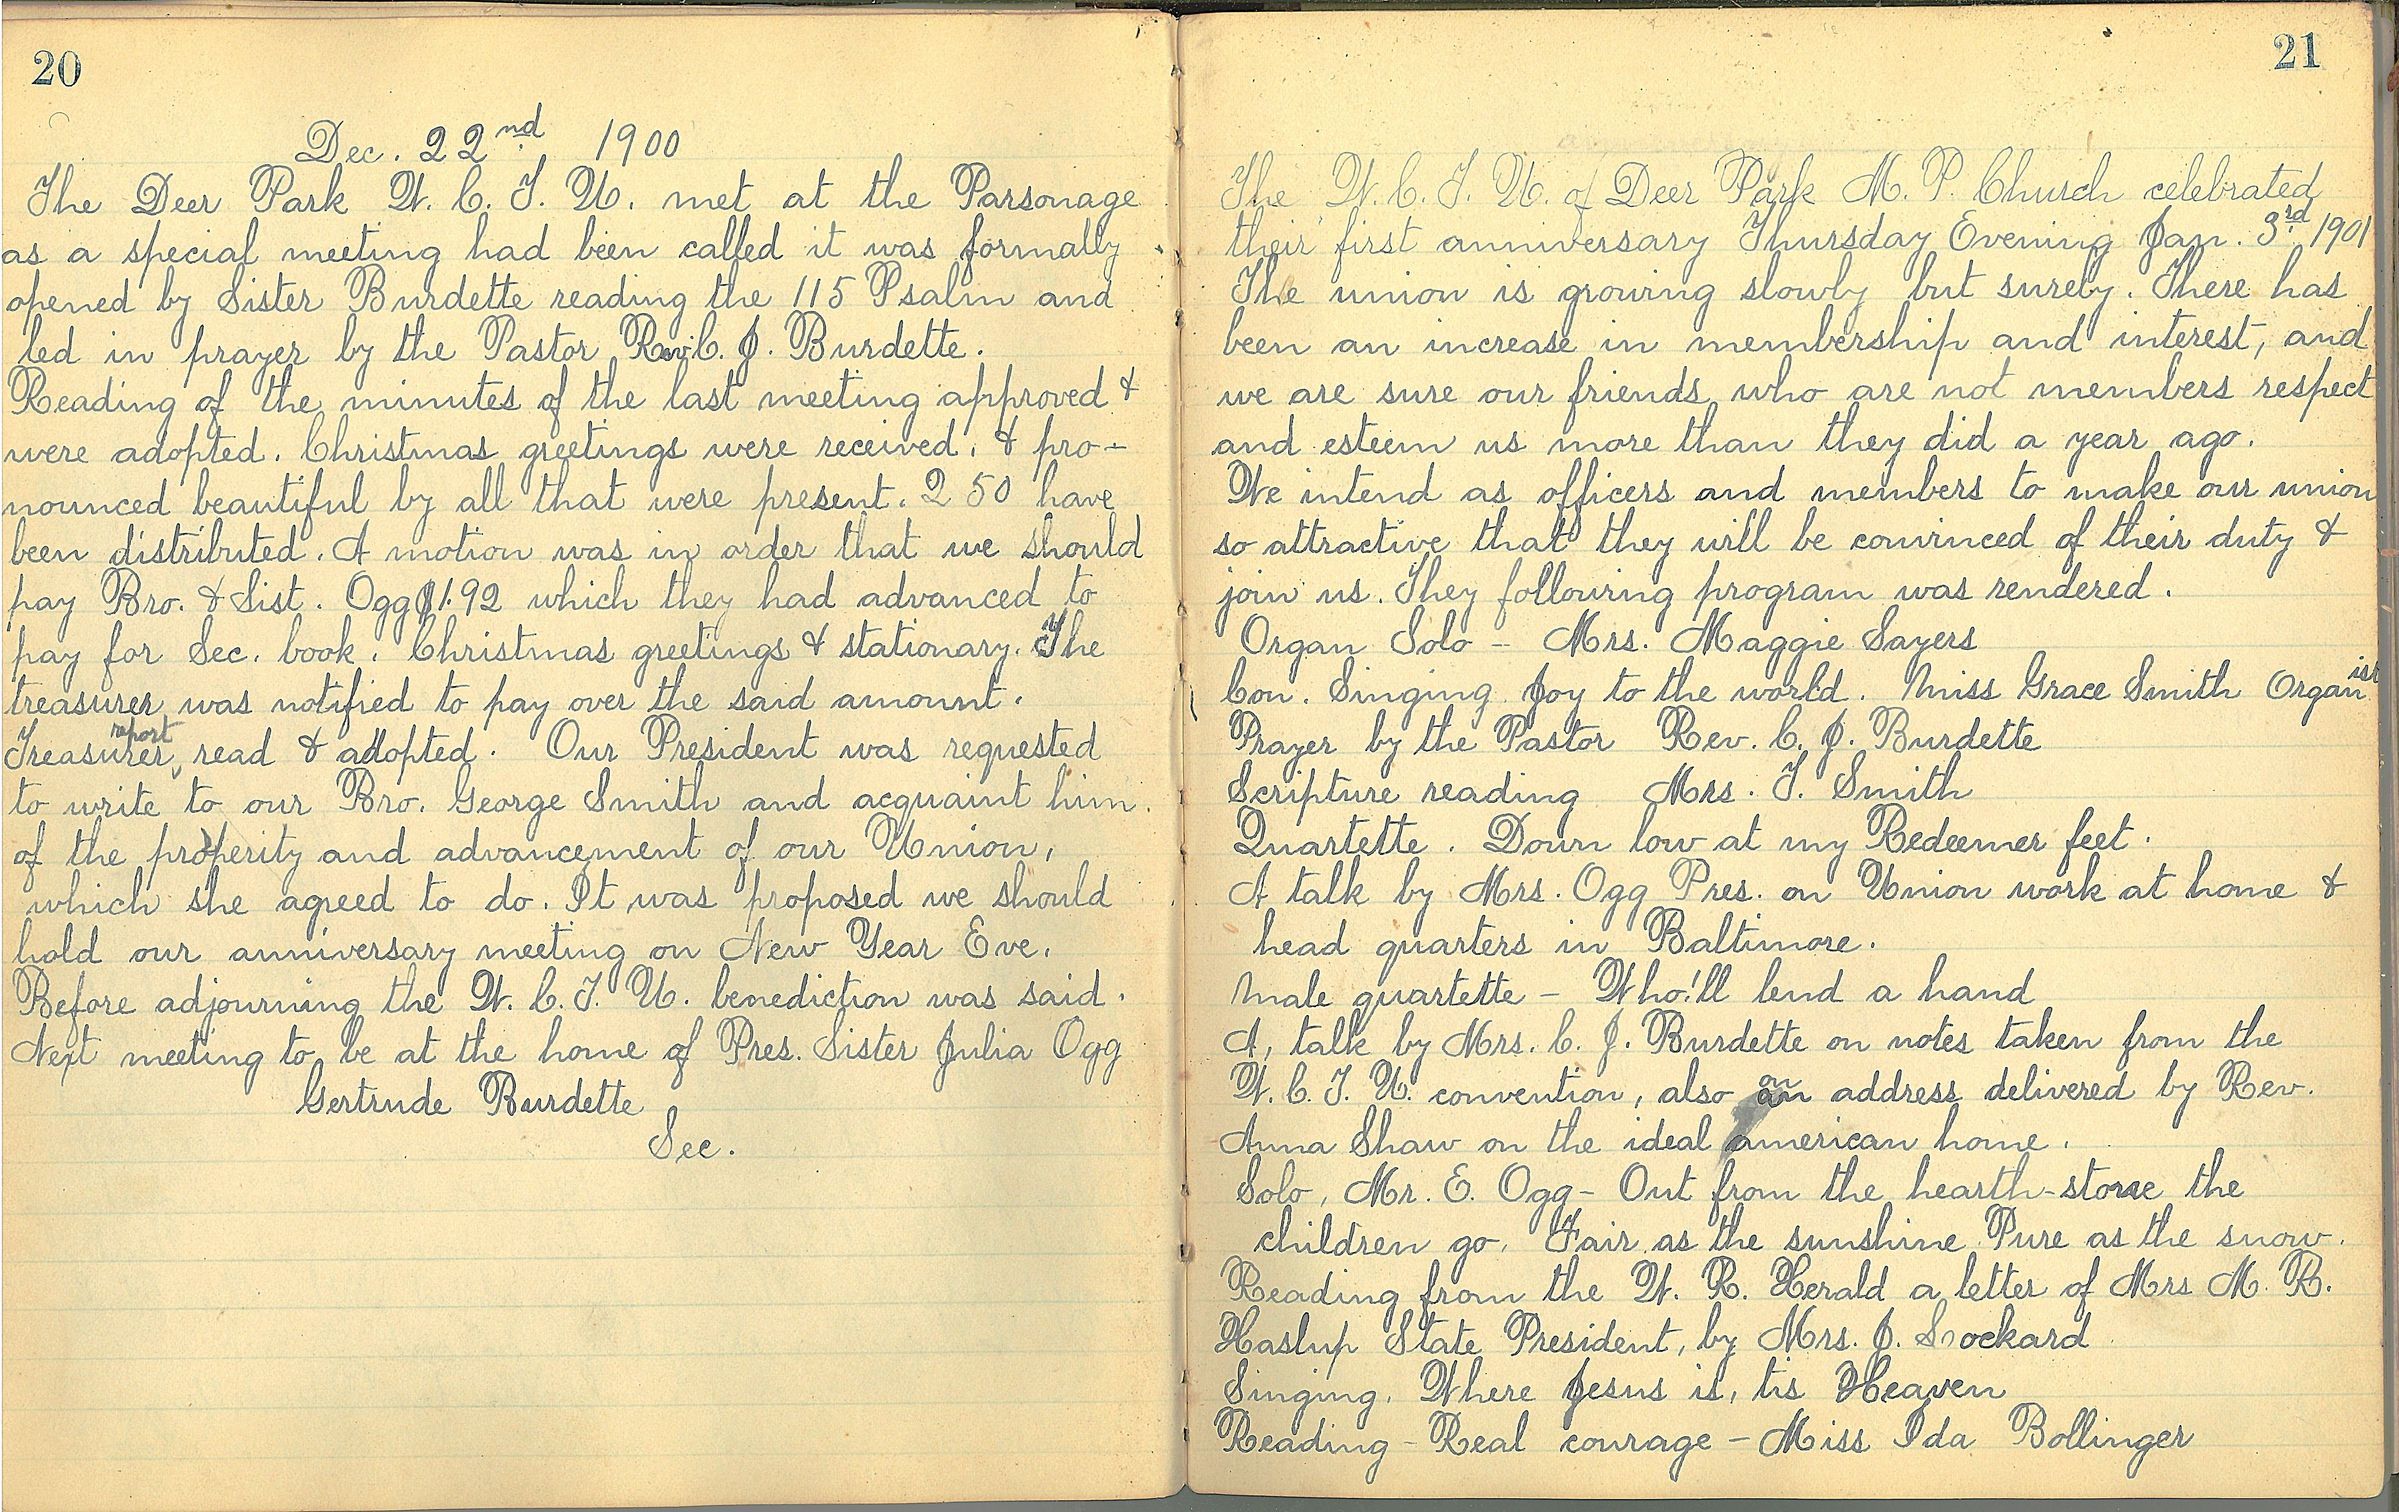 20
Dec. 22nd 1900
The Deer Park W. C. T. U. met at the Parsonage
as a special meeting had been called it was formally
opened by Sister Burdette reading the 115 Psalm and
led in prayer by the Pastor Rev. C. J. Burdette.
Reading of the minutes of the last meeting approved &
were adopted. Christmas greetings were received. & pro-
nounced beautiful by all that were present. 250 have
been distributed. A motion was in order that we should
pay Bro. & Sist. Ogg $1.92 which they had advanced to
pay for Sec. book. Christmas greetings & stationary. The
treasurer was notified to pay over the said amount.
Treasurer report read & adopted. Our President was requested
to write to our Bro. George Smith and acquaint him
of the properity and advancement of our Union,
which she agreed to do. It was proposed we should
hold our anniversary meeting on New Year Eve.
Before adjourning the W. C. T. U. benediction was said.
Next meeting to be at the home of Pres. Sister Julia Ogg
Gertrude Burdette
Sec.
21
The W. C. T. U. of Deer Park M. P. Church celebrated
their first anniversary Thursday Evening Jan. 3rd 1901
The union is growing slowly but surely. There has
been an increase in membership and interest, and
we are sure our friends who are not members respect
and esteem us more than they did a year ago.
We intend as officers and members to make our union
so attractive that they will be convinced of their duty &
join us. They following program was rendered.
Organ Solo – Mrs. Maggie Sayers
Con. Singing Joy to the world. Miss Grace Smith Organist
Prayer by the Pastor Rev. C. J. Burdette
Scripture reading Mrs. T. Smith
Quartette. Down low at my Redeemer feet.
A talk by Mrs. Ogg Pres. on Union work at home &
head quarters in Baltimore.
Male quartette – Who'll lend a hand
A, talk by Mrs. C. J. Burdette on notes taken from the
W. C. T. U. convention, also on an address delivered by Rev.
Anna Shaw on the ideal american home.
Solo, Mr. E. Ogg – Out from the hearth-stone the
children go. Fair as the sunshine Pure as the snow.
Reading from the W. R. Herald a letter of Mrs M. R.
Haslup State President, by Mrs. J. Lockard
Singing. Where Jesus is, tis Heaven
Reading – Real courage – Miss Ida Bollinger